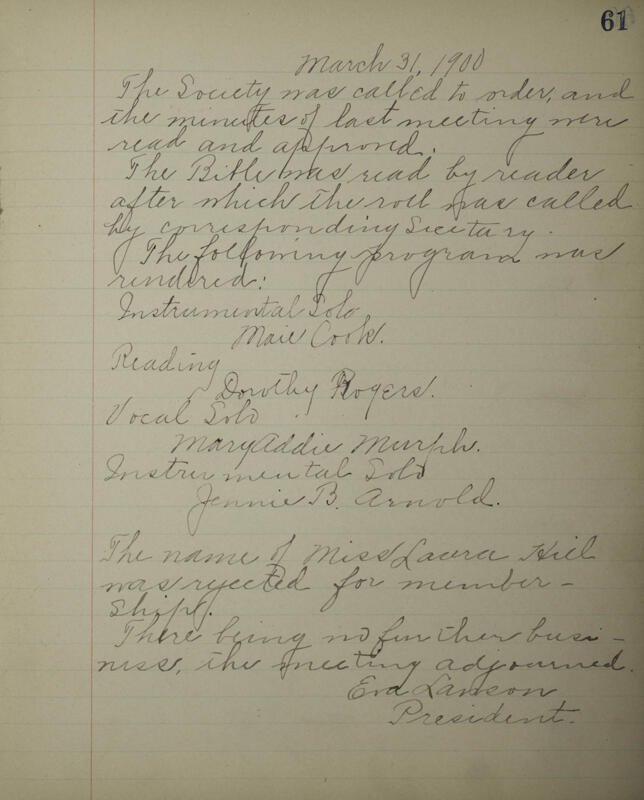 61
March 31, 1900
The Society was called to order, and
the minutes of last meeting were
read and approved.
The Bible was read by reader
after which the roll was called
by corresponding Secretary.
The following program was
rendered:
Instrumental Solo
Maie Cook.
Reading
Dorothy Rogers.
Vocal Solo
Mary Addie Murph.
Instrumental Solo
Jennie B. Arnold.
The name of Miss Laura Hill
was rejected for member-
ship.
There being no further busi-
ness, the meeting adjourned.
Eva Lawson
President.